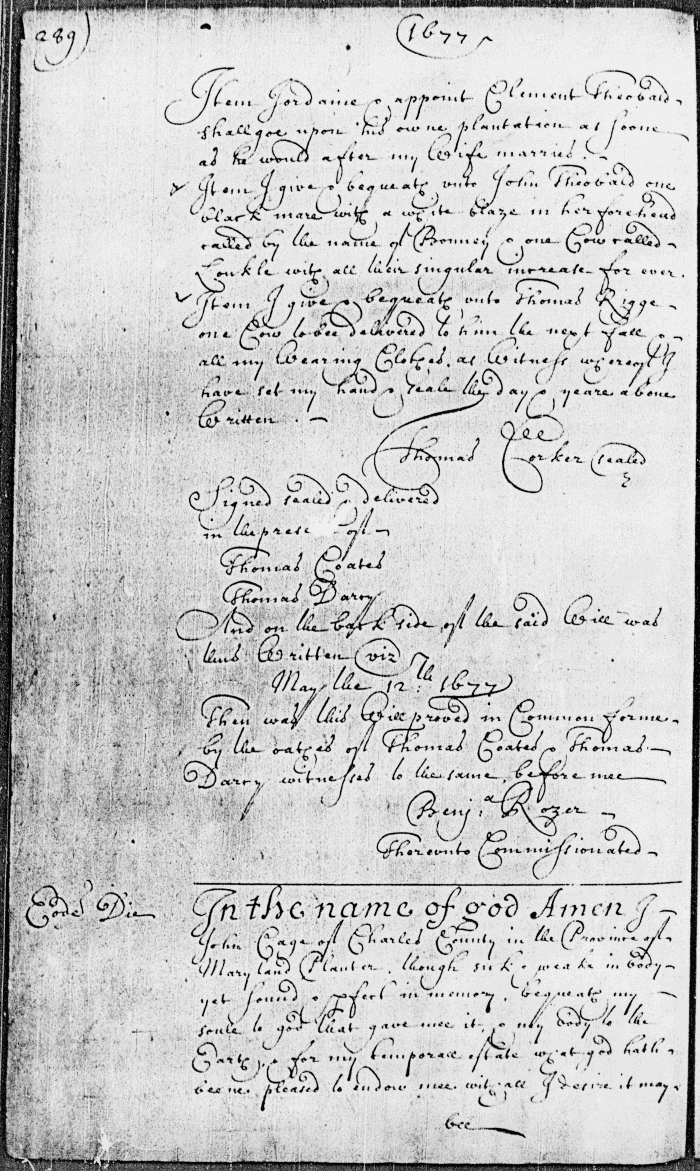 289
1677
Item I ordaine & appoint Clement Theobald
shall goe upon his owne plantation as soone
as he would after my Wife marries.
Item I give & bequeath unto John Theobald one
black mare with a white blaze in her forehead
called by the name of Bonney & one Cow called
with all their singular increase for ever.
Item I give & bequeath unto Thomas Rigge
one Cow to bee delivered to him the next fall &
all my Wearing Clothes. as Witness whereof I
have set my hand & seale the day & yeare above
Written.
Thomas Corker sealed
Signed sealed & delivered
in the prese of
Thomas Coates
Thomas Darcy
And on the back side of the said Will was
thus Written viz
May the 12th: 1677
Then was this Will proved in Common forme
by the oathes of Thomas Coates & Thomas
Darcy witnesses to the same before mee
Benj:a Rozer
Thereunto Commissionated
Eode' Die
In the name of god Amen I
John Cage of Charles County in the Province of
Maryland Planter, though sick & weake in body
yet sound & pfect in memory, bequeath my
soule to god that gave mee it, & my body to the
Earth, & for my temporall estate what god hath
beene pleased to endow mee withall I desire it may
bee